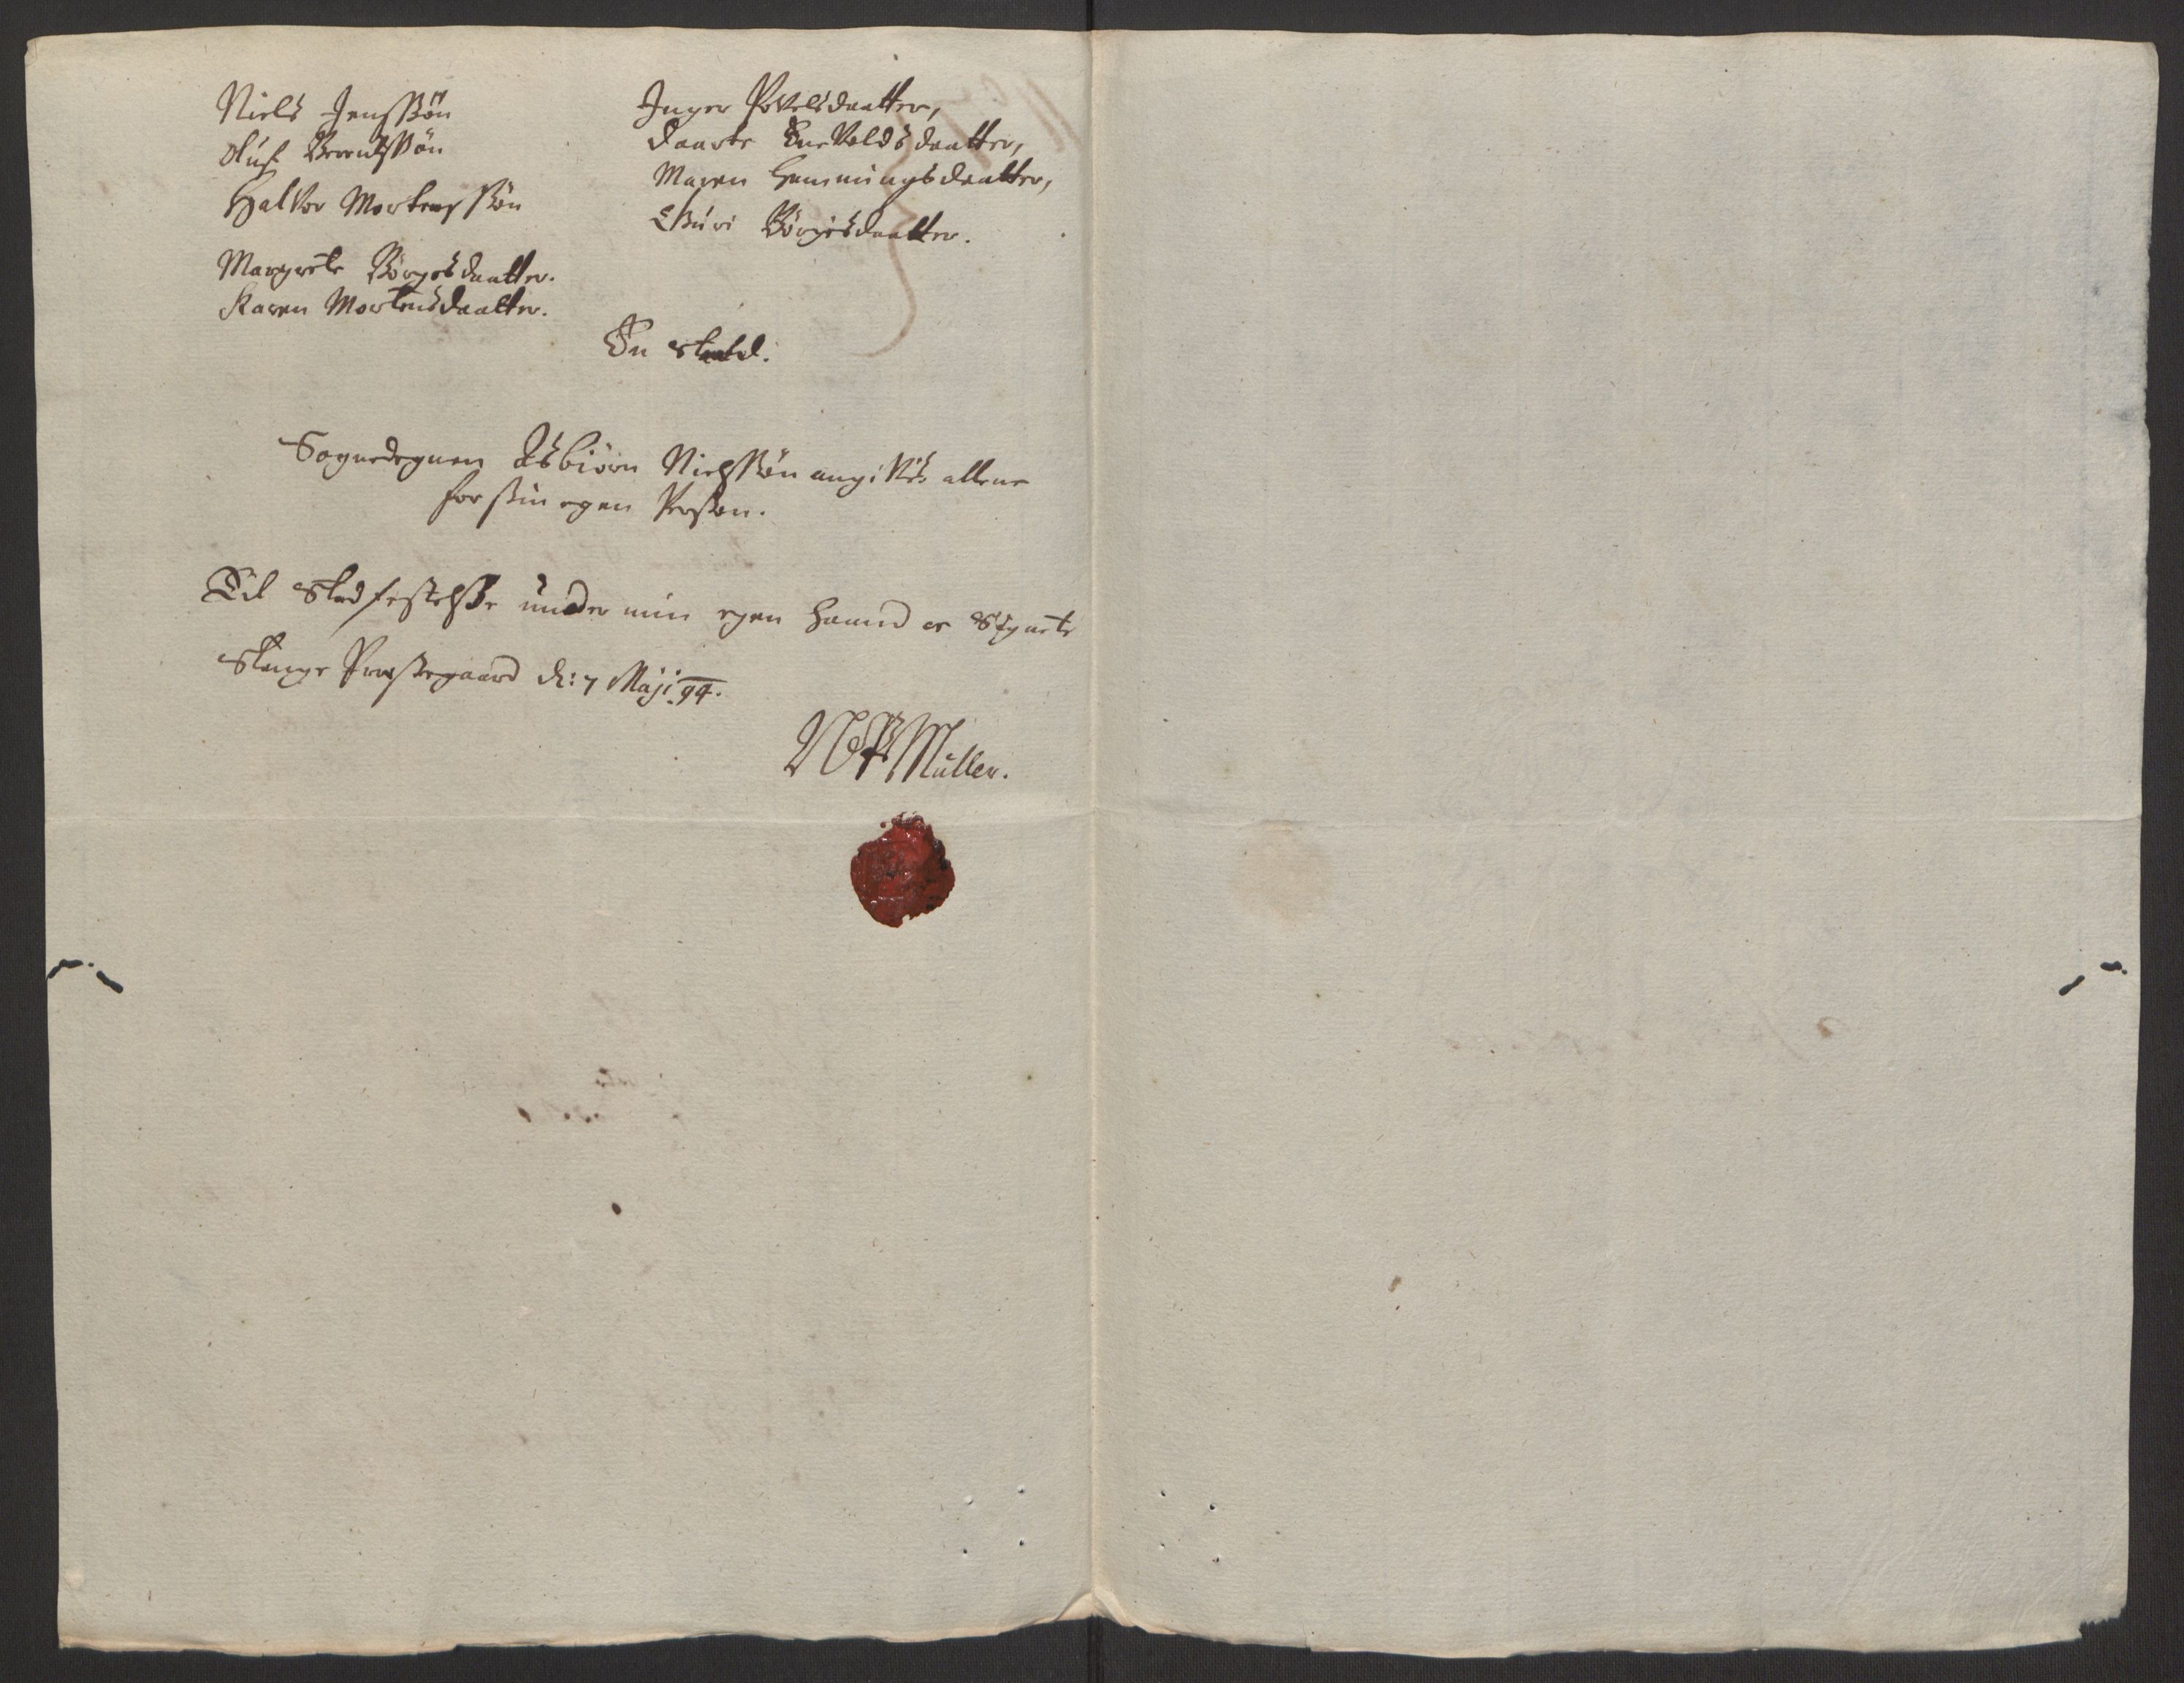 Niels Jensßøn
Oluf Berentßøn
Halvor Mortensßøn
Margrete Børgesdaatter.
Karen Mortensdaatter.
Inger Povelsdaatter,
Daarte Enevoldsdaatter,
Maren Hemmingsdaatter,
Guri Børgisdaatter.
En
Sognedegnen Asbiørn Nielsßøn angives allene
for ßin egen Perßon.
Til Stadfestelße under min egen Haand oc Signete
Stange Præstegaard d: 7 Maji 94.
Müller.